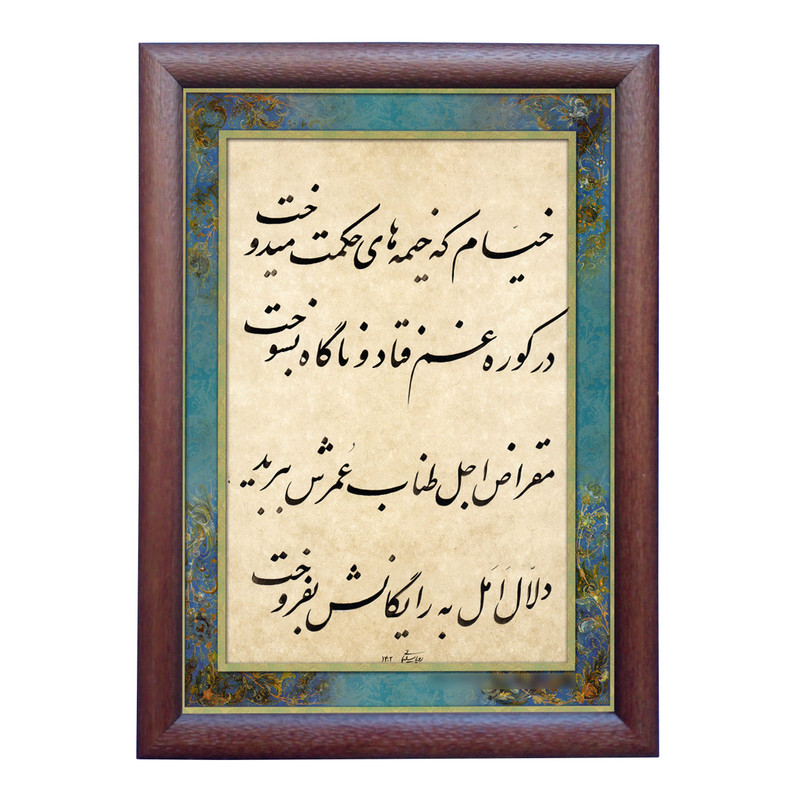 خیّام که خیمه‌های حکمت میدوخت
در کوره غم فتاد و ناگاه بسوخت
مقراض اجل طناب عُمرش ببرید
دلّال اَمَل به رایگانش بفروخت
۱۴۰۲